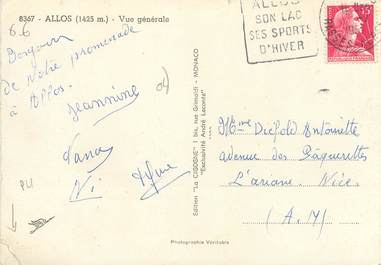 8367 - ALLOS (1425 m.) - Vue générale
6.6
Bonjour
de notre promenade
à Allos.
Jeannine
Edition "La CIGOGNE" 1 bis, rue Grimaldi - MONACO
"Exclusivité André Leconte"
Photographie Véritable
ALLOS
SON LAC
SES SPORTS
D'HIVER
15
Antoinette
avenue des Pâquerettes
L'ariane. Nice.
(A.M)